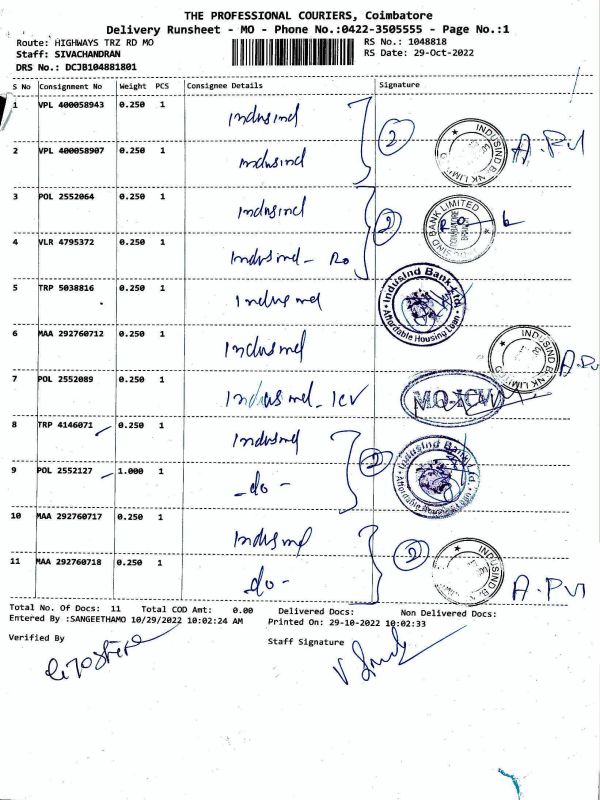 THE PROFESSIONAL COURIERS, Coimbatore
Delivery Runsheet - MO - Phone No.:0422-3505555 - Page No.:1
Route: HIGHWAYS TRZ RD MO
RS No.: 1048818
Staff: SIVACHANDRAN
RS Date: 29-Oct-2022
DRS No.: DCJB104881801
S No Consignment No Weight PCS Consignee Details Signature
1 VPL 400058943 0.250 1 Indusind
2 VPL 400058907 0.250 1 Indusind
2 INDUSIND BANK LIMITED
3 POL 2552064 0.250 1 Indusind
4 VLR 4795372 0.250 1 Indusind - Ro
2 INDUSIND BANK LIMITED COIMBATORE
5 TRP 5038816 0.250 1 Indusind
IndusInd Bank Ltd. Affordable Housing Loan
6 MAA 292760712 0.250 1 Indusind
INDUSIND BANK LIMITED
7 POL 2552089 0.250 1 Indusind - ICV
MO-ICV
8 TRP 4146071 0.250 1 Indusind
9 POL 2552127 1.000 1 - do -
2 IndusInd Bank Ltd. Affordable Housing Loan
10 MAA 292760717 0.250 1 Indusind
11 MAA 292760718 0.250 1 do -
2
Total No. Of Docs: 11 Total COD Amt: 0.00 Delivered Docs: Non Delivered Docs:
Entered By :SANGEETHAMO 10/29/2022 10:02:24 AM Printed On: 29-10-2022 10:02:33
Verified By
Staff Signature